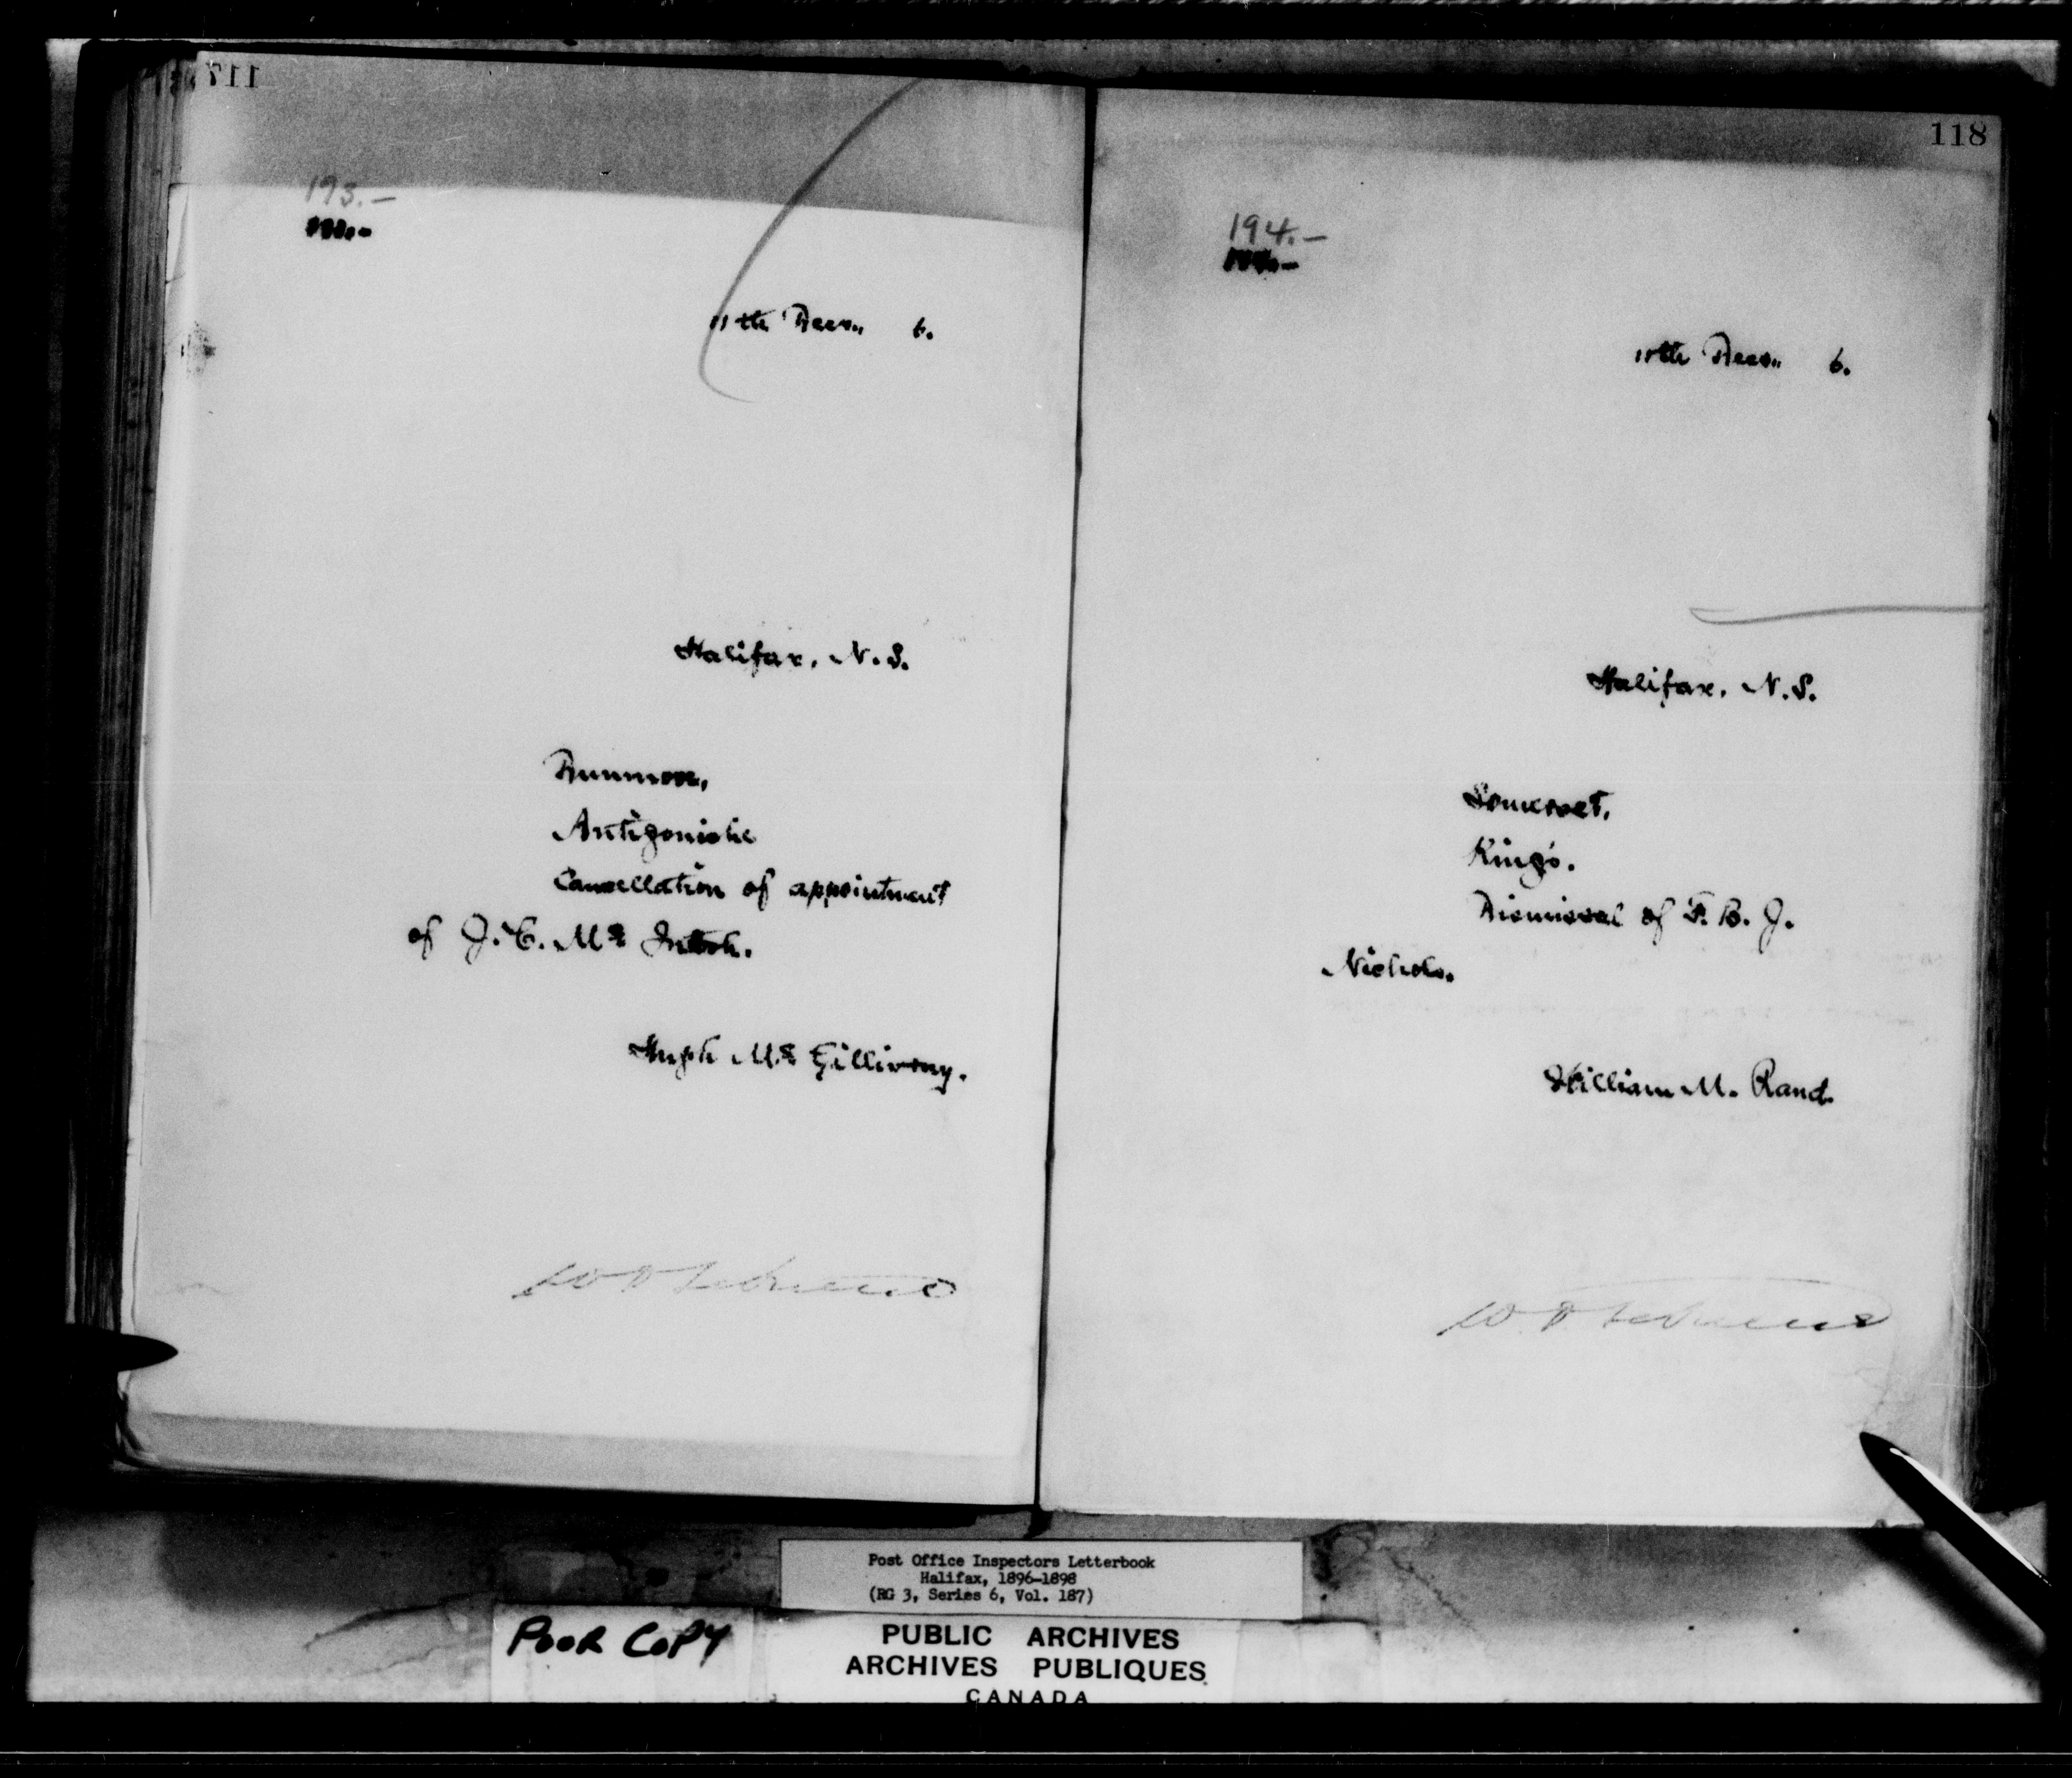 117
193.-
11th Decr., 6.
Halifax, N.S.
Dunmore,
Antigonishe
Cancellation of appointment
of J. C. Mc Intosh.
Hugh Mc Gillivray.
118
194.-
th Decr., 6.
Halifax, N.S.
Somerset,
King's.
Dismissal of F. B. J.
Nichols.
William M. Rand.
Post Office Inspectors Letterbook
Halifax, 1896-1898
(RG 3, Series 6, Vol. 187)
POOR COPY
PUBLIC ARCHIVES
ARCHIVES PUBLIQUES
CANADA